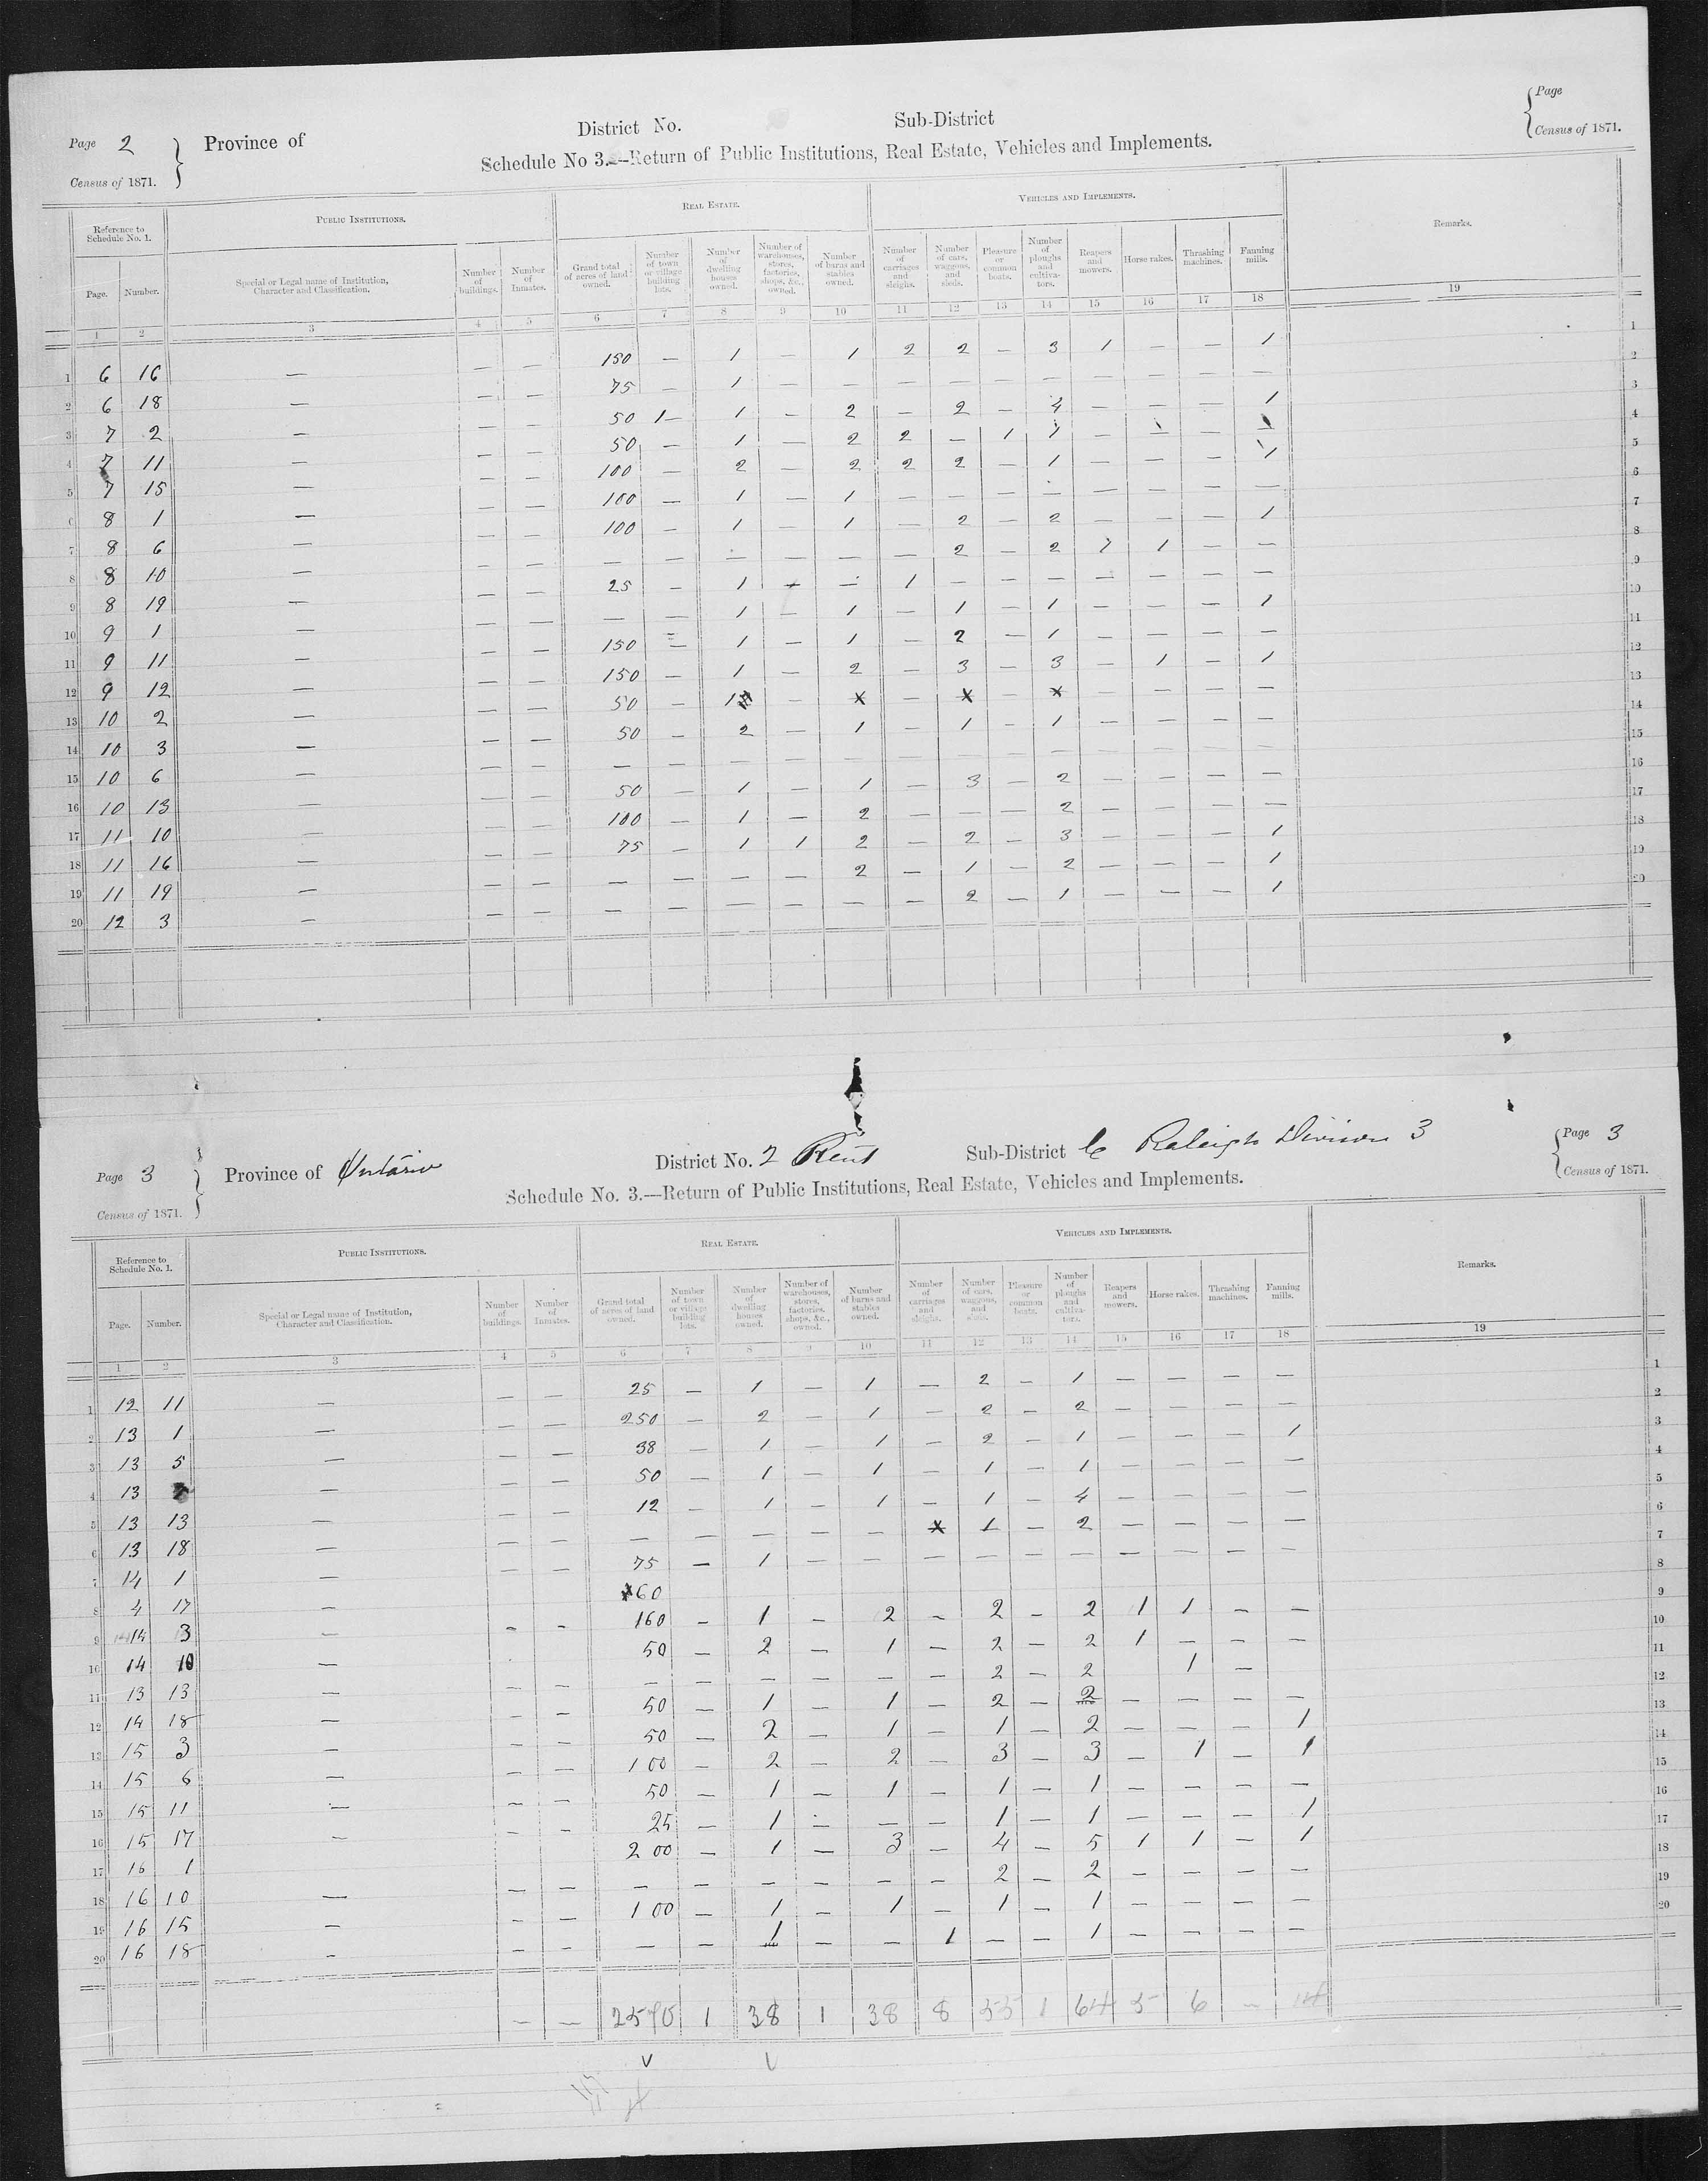 Page 2
Province of
District No.
Sub-District
Page
Census of 1871.
Census of 1871.
Schedule No 3.—Return of Public Institutions, Real Estate, Vehicles and Implements.
Reference to Schedule No. 1.
Public Institutions.
Real Estate.
Vehicles and Implements.
Remarks.
Page. Number. Special or Legal name of Institution, Character and Classification. Number of buildings. Number of Inmates. Grand total of acres of land owned. Number of town or village building lots. Number of dwelling houses owned. Number of warehouses, stores, factories, shops, &c., owned. Number of barns and stables owned. Number of carriages and sleighs. Number of cars, waggons, and sleds. Pleasure or common boats. Number of ploughs and cultivators. Reapers and mowers. Horse rakes. Thrashing machines. Fanning mills.
1 2 3 4 5 6 7 8 9 10 11 12 13 14 15 16 17 18 19
1 6 16 — — — 150 — 1 — 1 2 2 — 3 1 — — 1 1
2 6 18 — — — 75 — 1 — — — — — — — — — — 2
3 7 2 — — — 50 1 — 1 — 2 — 2 — 4 — — — 1 3
4 7 11 — — — 50 — 1 — 2 2 — 1 1 — — — — 4
5 7 15 — — — 100 — 2 — 2 2 2 — 1 — — — 1 5
6 8 1 — — — 100 — 1 — 1 — — — — — — — — 6
7 8 6 — — — 100 — 1 — 1 — 2 — 2 — — — 1 7
8 8 10 — — — — — — — — — 2 — 2 1 1 — — 8
9 8 19 — — — 25 — 1 — — 1 — — — — — — — 9
10 9 1 — — — — — 1 — 1 — 1 — 1 — — — 1 10
11 9 11 — — — 150 — 1 — 1 — 2 — 1 — — — — 11
12 9 12 — — — 150 — 1 — 2 — 3 — 3 — 1 — 1 12
13 10 2 — — — 50 — 1 — x — x — x — — — — 13
14 10 3 — — — 50 — 2 — 1 — 1 — 1 — — — — 14
15 10 6 — — — — — — — — — — — — — — — — 15
16 10 13 — — — 50 — 1 — 1 — 3 — 2 — — — — 16
17 11 10 — — — 100 — 1 — 2 — — — 2 — — — — 17
18 11 16 — — — 75 — 1 1 2 — 2 — 3 — — — 1 18
19 11 19 — — — — — — — 2 — 1 — 2 — — — 1 19
20 12 3 — — — — — — — — — 2 — 1 — — — 1 20
Page 3
Province of Ontario
District No. 2 Kent
Sub-District C Raleigh Division 3
Page 3
Census of 1871.
Census of 1871.
Schedule No. 3.—Return of Public Institutions, Real Estate, Vehicles and Implements.
Reference to Schedule No. 1.
Public Institutions.
Real Estate.
Vehicles and Implements.
Remarks.
Page. Number. Special or Legal name of Institution, Character and Classification. Number of buildings. Number of Inmates. Grand total of acres of land owned. Number of town or village building lots. Number of dwelling houses owned. Number of warehouses, stores, factories, shops, &c., owned. Number of barns and stables owned. Number of carriages and sleighs. Number of cars, waggons, and sleds. Pleasure or common boats. Number of ploughs and cultivators. Reapers and mowers. Horse rakes. Thrashing machines. Fanning mills.
1 2 3 4 5 6 7 8 9 10 11 12 13 14 15 16 17 18 19
1 12 11 — — — 25 — 1 — 1 — 2 — 1 — — — — 1
2 13 1 — — — 250 — 2 — 1 — 2 — 2 — — — — 2
3 13 5 — — — 38 — 1 — 1 — 2 — 1 — — — 1 3
4 13 — — — 50 — 1 — 1 — 1 — 1 — — — — 4
5 13 13 — — — 12 — 1 — 1 — 1 — 4 — — — — 5
6 13 18 — — — — — — — — x 1 — 2 — — — — 6
7 14 1 — — — 75 — 1 — — — — — — — — — — 7
8 4 17 — x60 8
9 14 3 — — — 160 — 1 — 2 — 2 — 2 1 1 — — 9
10 14 10 — 50 — 2 — 1 — 2 — 2 1 — — — 10
11 13 13 — — — — — — — — — 2 — 2 1 — 11
12 14 18 — — — 50 — 1 — 1 — 2 — 2 — — — — 12
13 15 3 — — — 50 — 2 — 1 — 1 — 2 — — — 1 13
14 15 6 — — — 100 — 2 — 2 — 3 — 3 — 1 — 1 14
15 15 11 — — — 50 — 1 — 1 — 1 — 1 — — — — 15
16 15 17 — — — 25 — 1 — — — 1 — 1 — — — 1 16
17 16 1 200 — 1 — 3 — 4 — 5 1 1 — 1 17
18 16 10 — — — — — — — — — 2 — 2 — — — — 18
19 16 15 — — — 100 — 1 — 1 — 1 — 1 — — — — 19
20 16 18 — — — — — 1 — — 1 — — 1 — — — — 20
— — 2570 1 38 1 38 8 55 1 64 5 6 — 14